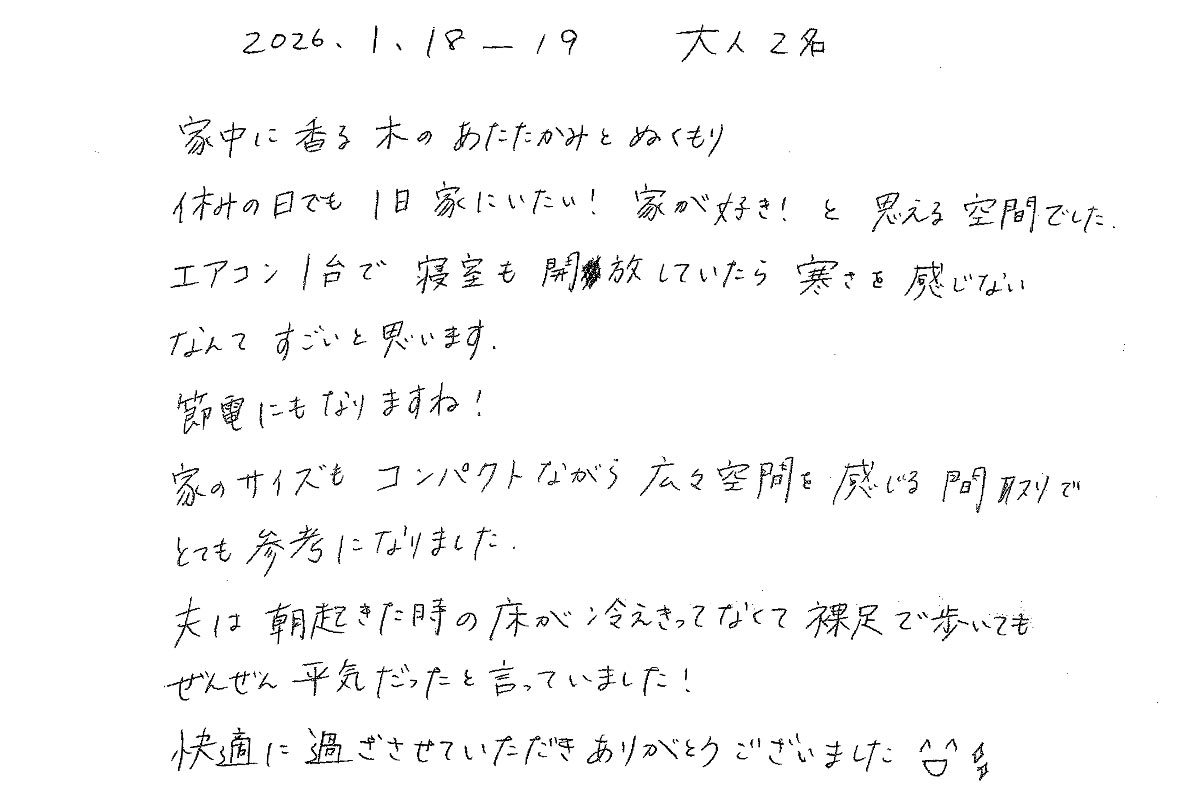 2026.1.18—19 大人2名
家中に香る木のあたたかみとぬくもり
休みの日でも1日家にいたい!家が好き!と思える空間でした.
エアコン1台で寝室も開放していたら寒さを感じない
なんてすごいと思います.
節電にもなりますね!
家のサイズもコンパクトながら広々空間を感じる間取りで
とても参考になりました.
夫は朝起きた時の床が冷えきってなくて裸足で歩いても
ぜんぜん平気だったと言っていました!
快適に過ごさせていただきありがとうございました